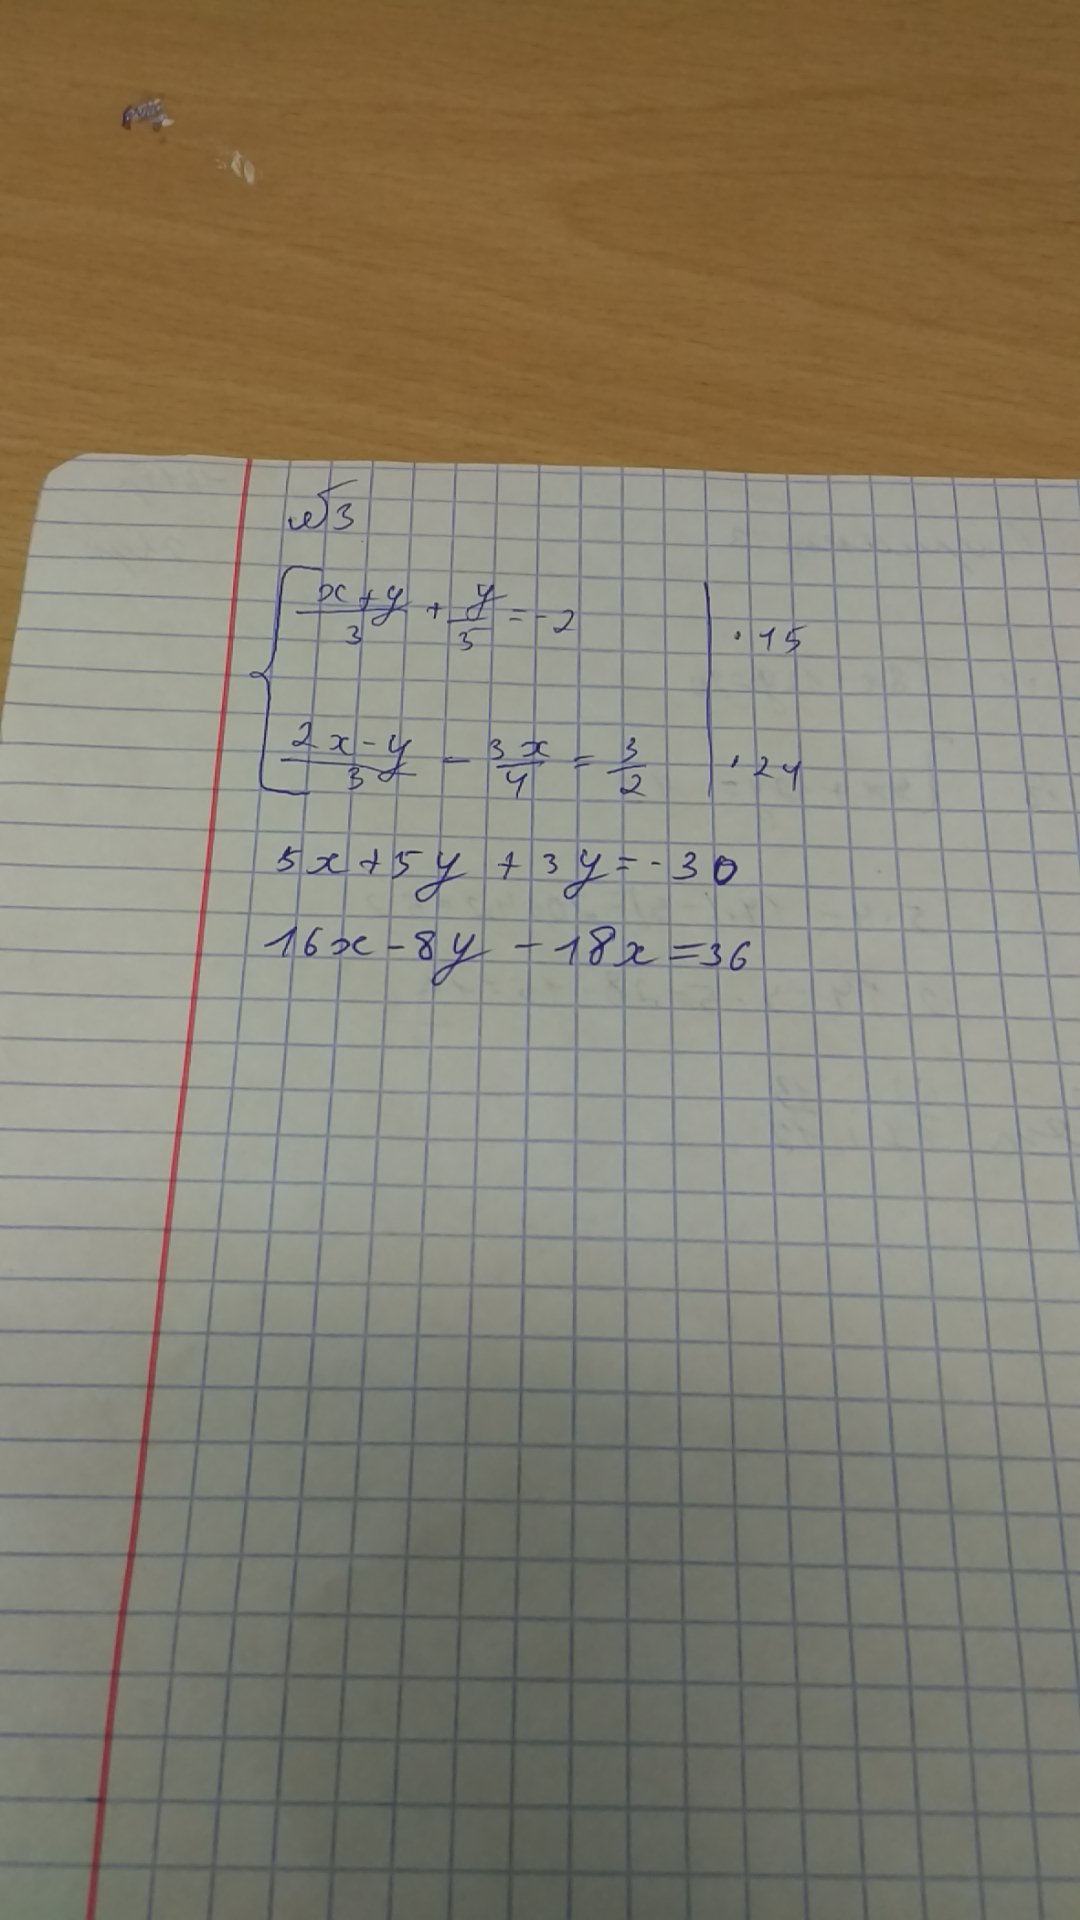 №3
x+y/3 + y/5 = -2 | · 15
2x-y/3 - 3x/4 = 3/2 | · 24
5x+5y + 3y = -30
16x - 8y - 18x = 36